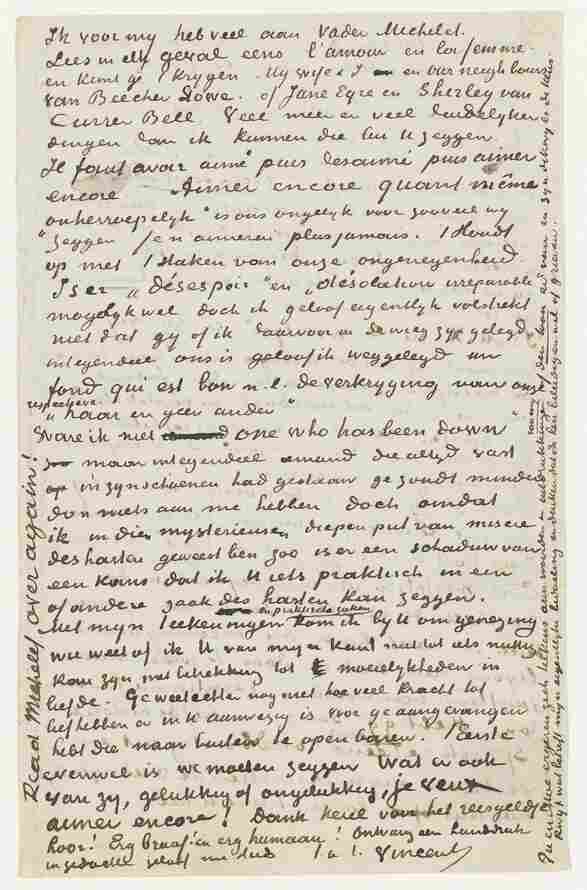 Ik voor my heb veel aan Vader Michelet.
Lees in elk geval eens l'amour en la femme
en kunt ge 't krygen My wife & I en our neighbours
van Beecher Stowe. of Jane Eyre en Shirley van
Currer Bell Veel meer en veel duidelyker
dingen dan ik kunnen die lui U zeggen.
Il faut avoir aimé puis désaimé puis aimer
encore Aimer encore quand même
onherroepelyk is ons ongelyk voor zooveel wy
"zeggen je n'aimerai plus jamais. 't Houdt
op met 't staken van onze ongenegenheid.
Is er „désespoir" en „désolation irréparable
mogelyk wel doch ik geloof eigentlyk volstrekt
niet dat gy of ik daarvoor in de wieg zyn gelegd
integendeel ons is geloof ik weggelegd un
fond qui est bon n.l. de verkryging van onze
respectieve
„haar en geen ander"
Ware ik niet one who has been down
maar integendeel iemand die altyd vast
in zyn schoenen had gestaan ge zoudt minder
dan niets aan me hebben doch omdat
ik in dien mysterieusen diepen put van misere
des harten geweest ben zoo is er een schaduw van
een kans dat ik U iets praktisch in een
of andere zaak des harten kan zeggen.
en praktische zaken
Met myn teekeningen kom ik by U om genezing
wie weet of ik U van myn kant niet tot iets nuttig
kan zyn met betrekking tot moeielykheden in
liefde. Ge weet echter nog niet hoe veel kracht tot
liefhebben er in U aanwezig is voor ge aangevangen
hebt die naar buiten te openbaren. 't Eerste
evenwel is we moeten zeggen Wat er ook
van zy, gelukkig of ongelukkig, je veux
aimer encore! Dank kerel voor het reisgeld
hoor! Erg braaf en erg humaan! Ontvang een handdruk
in gedachte geloof me steeds t. à t. Vincent
Read Michelet, over again!